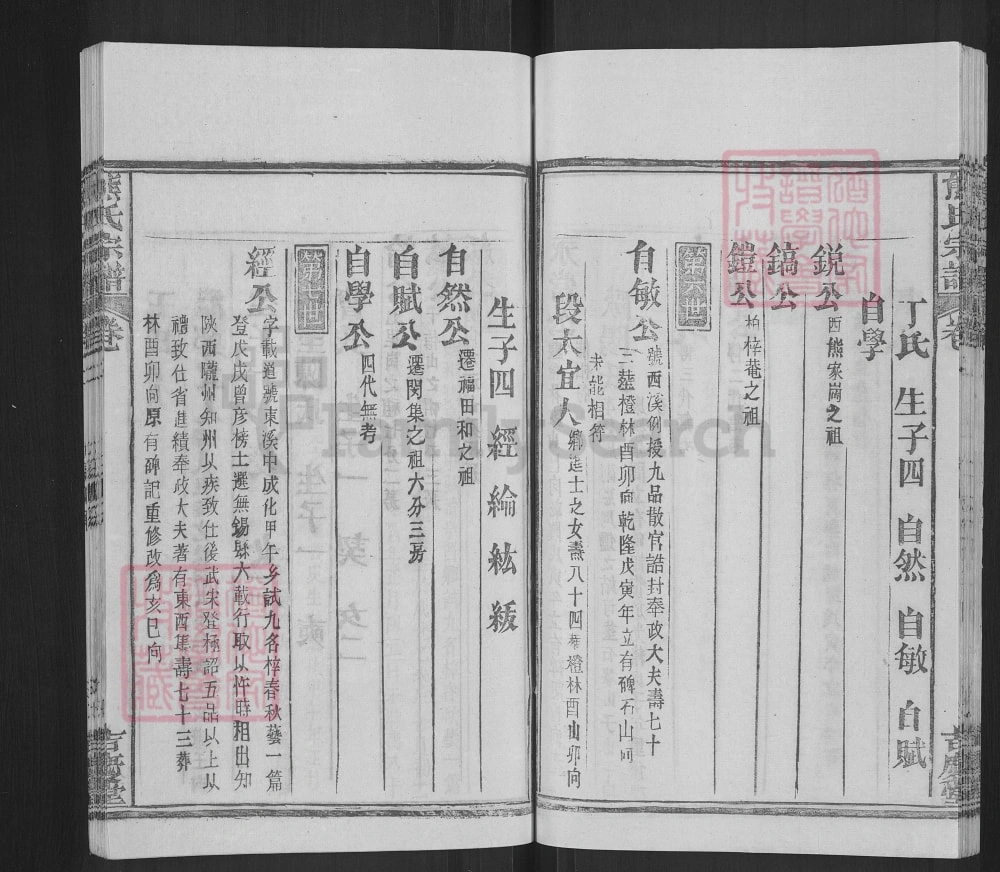 熊氏宗譜
卷
吉慶堂
丁氏 生子四 自然 自敏 自賦
自學
銳公 西熊家崗之祖
鎬公
鎧公 柏梓菴之祖
自敏公 號西溪例授九品散官誥封奉政大夫壽七十
三塟橙林酉卯向乾隆戊寅年立有碑石山向
未能相符
段太宜人 鄉進士之女壽八十四葬橙林酉山卯向
生子四 經 綸 紘 綬
自然公 遷福田和之祖
自賦公 遷閔集之祖六分三房
自學公 四代無考
經公 字載道號東溪中成化甲午乡試九名梓春秋藝一篇
登戊戌曾彥榜士選無錫縣六載行取以忤時相出知
陝西隴州知州以疾致仕後武宗登極詔五品以上以
禮致仕省進績奉政大夫著有東西集壽七十三葬
林酉卯向原有碑記重修改爲亥巳向
熊氏宗譜
卷
吉慶堂
FamilySearch